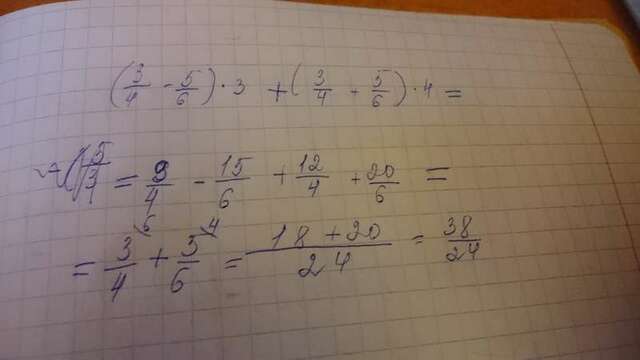 (3/4 - 5/6) · 3 + (3/4 + 5/6) · 4 =
= 9/4 - 15/6 + 12/4 + 20/6 =
= 3/4 6 + 5/6 4 = 18 + 20/24 = 38/24